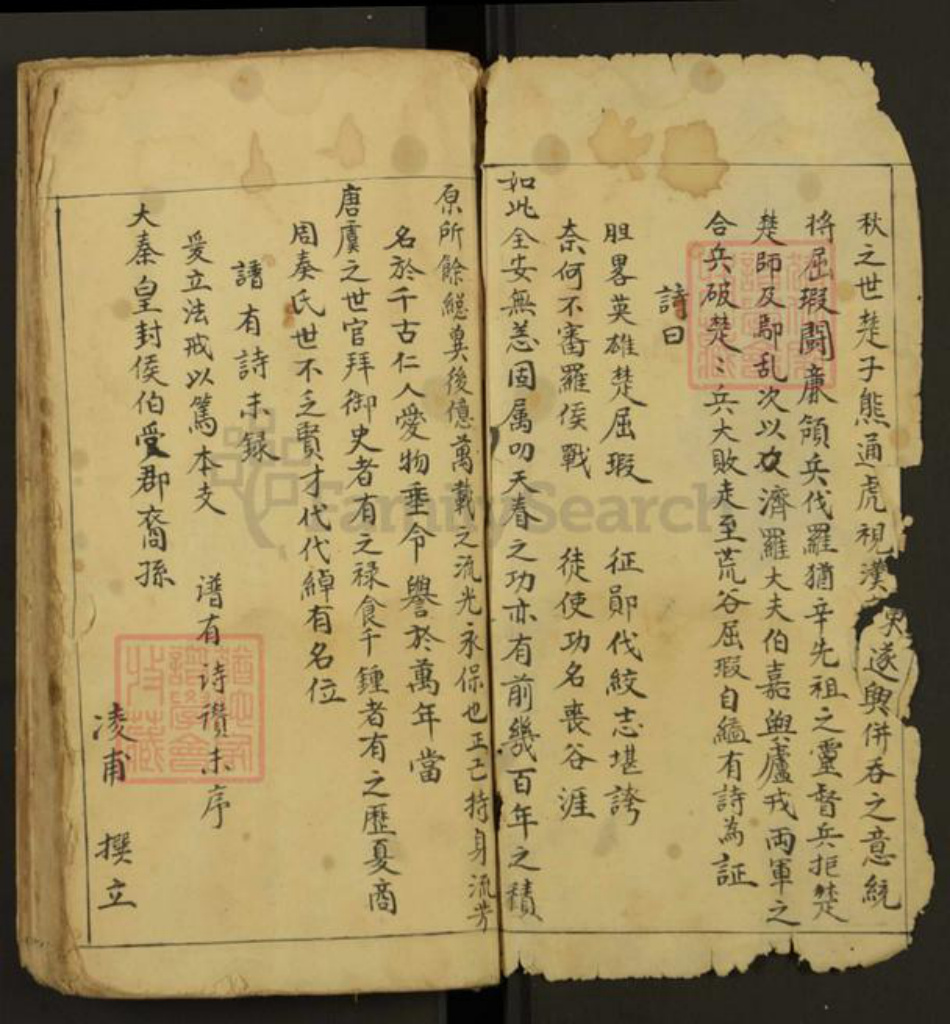 秋之世楚子熊通虎視漢東遂興併吞之意統
將屈瑕鬪廉領兵伐羅猶辛先祖之靈督兵拒楚
楚師及鄢乱次以次濟羅大夫伯嘉與廬戎兩軍之
合兵破楚〻兵大敗走至荒谷屈瑕自縊有詩為証
詩曰
胆畧英雄楚屈瑕 征鄖代絞志堪誇
奈何不審羅侯戰 徒使功名喪谷涯
如此全安無恙固属叨天春之功亦有前幾百年之積
原所餘總異後億萬載之流光永保也正己持身流芳
名於千古仁人愛物垂令譽於萬年當
唐虞之世官拜御史者有之禄食千鍾者有之歷夏商
周秦氏世不乏賢才代代綽有名位
譜有詩未録
爰立法戒以篤本支 谱有诗讚未序
大秦皇封侯伯受郡裔孫
凌甫 撰立
FamilySearch